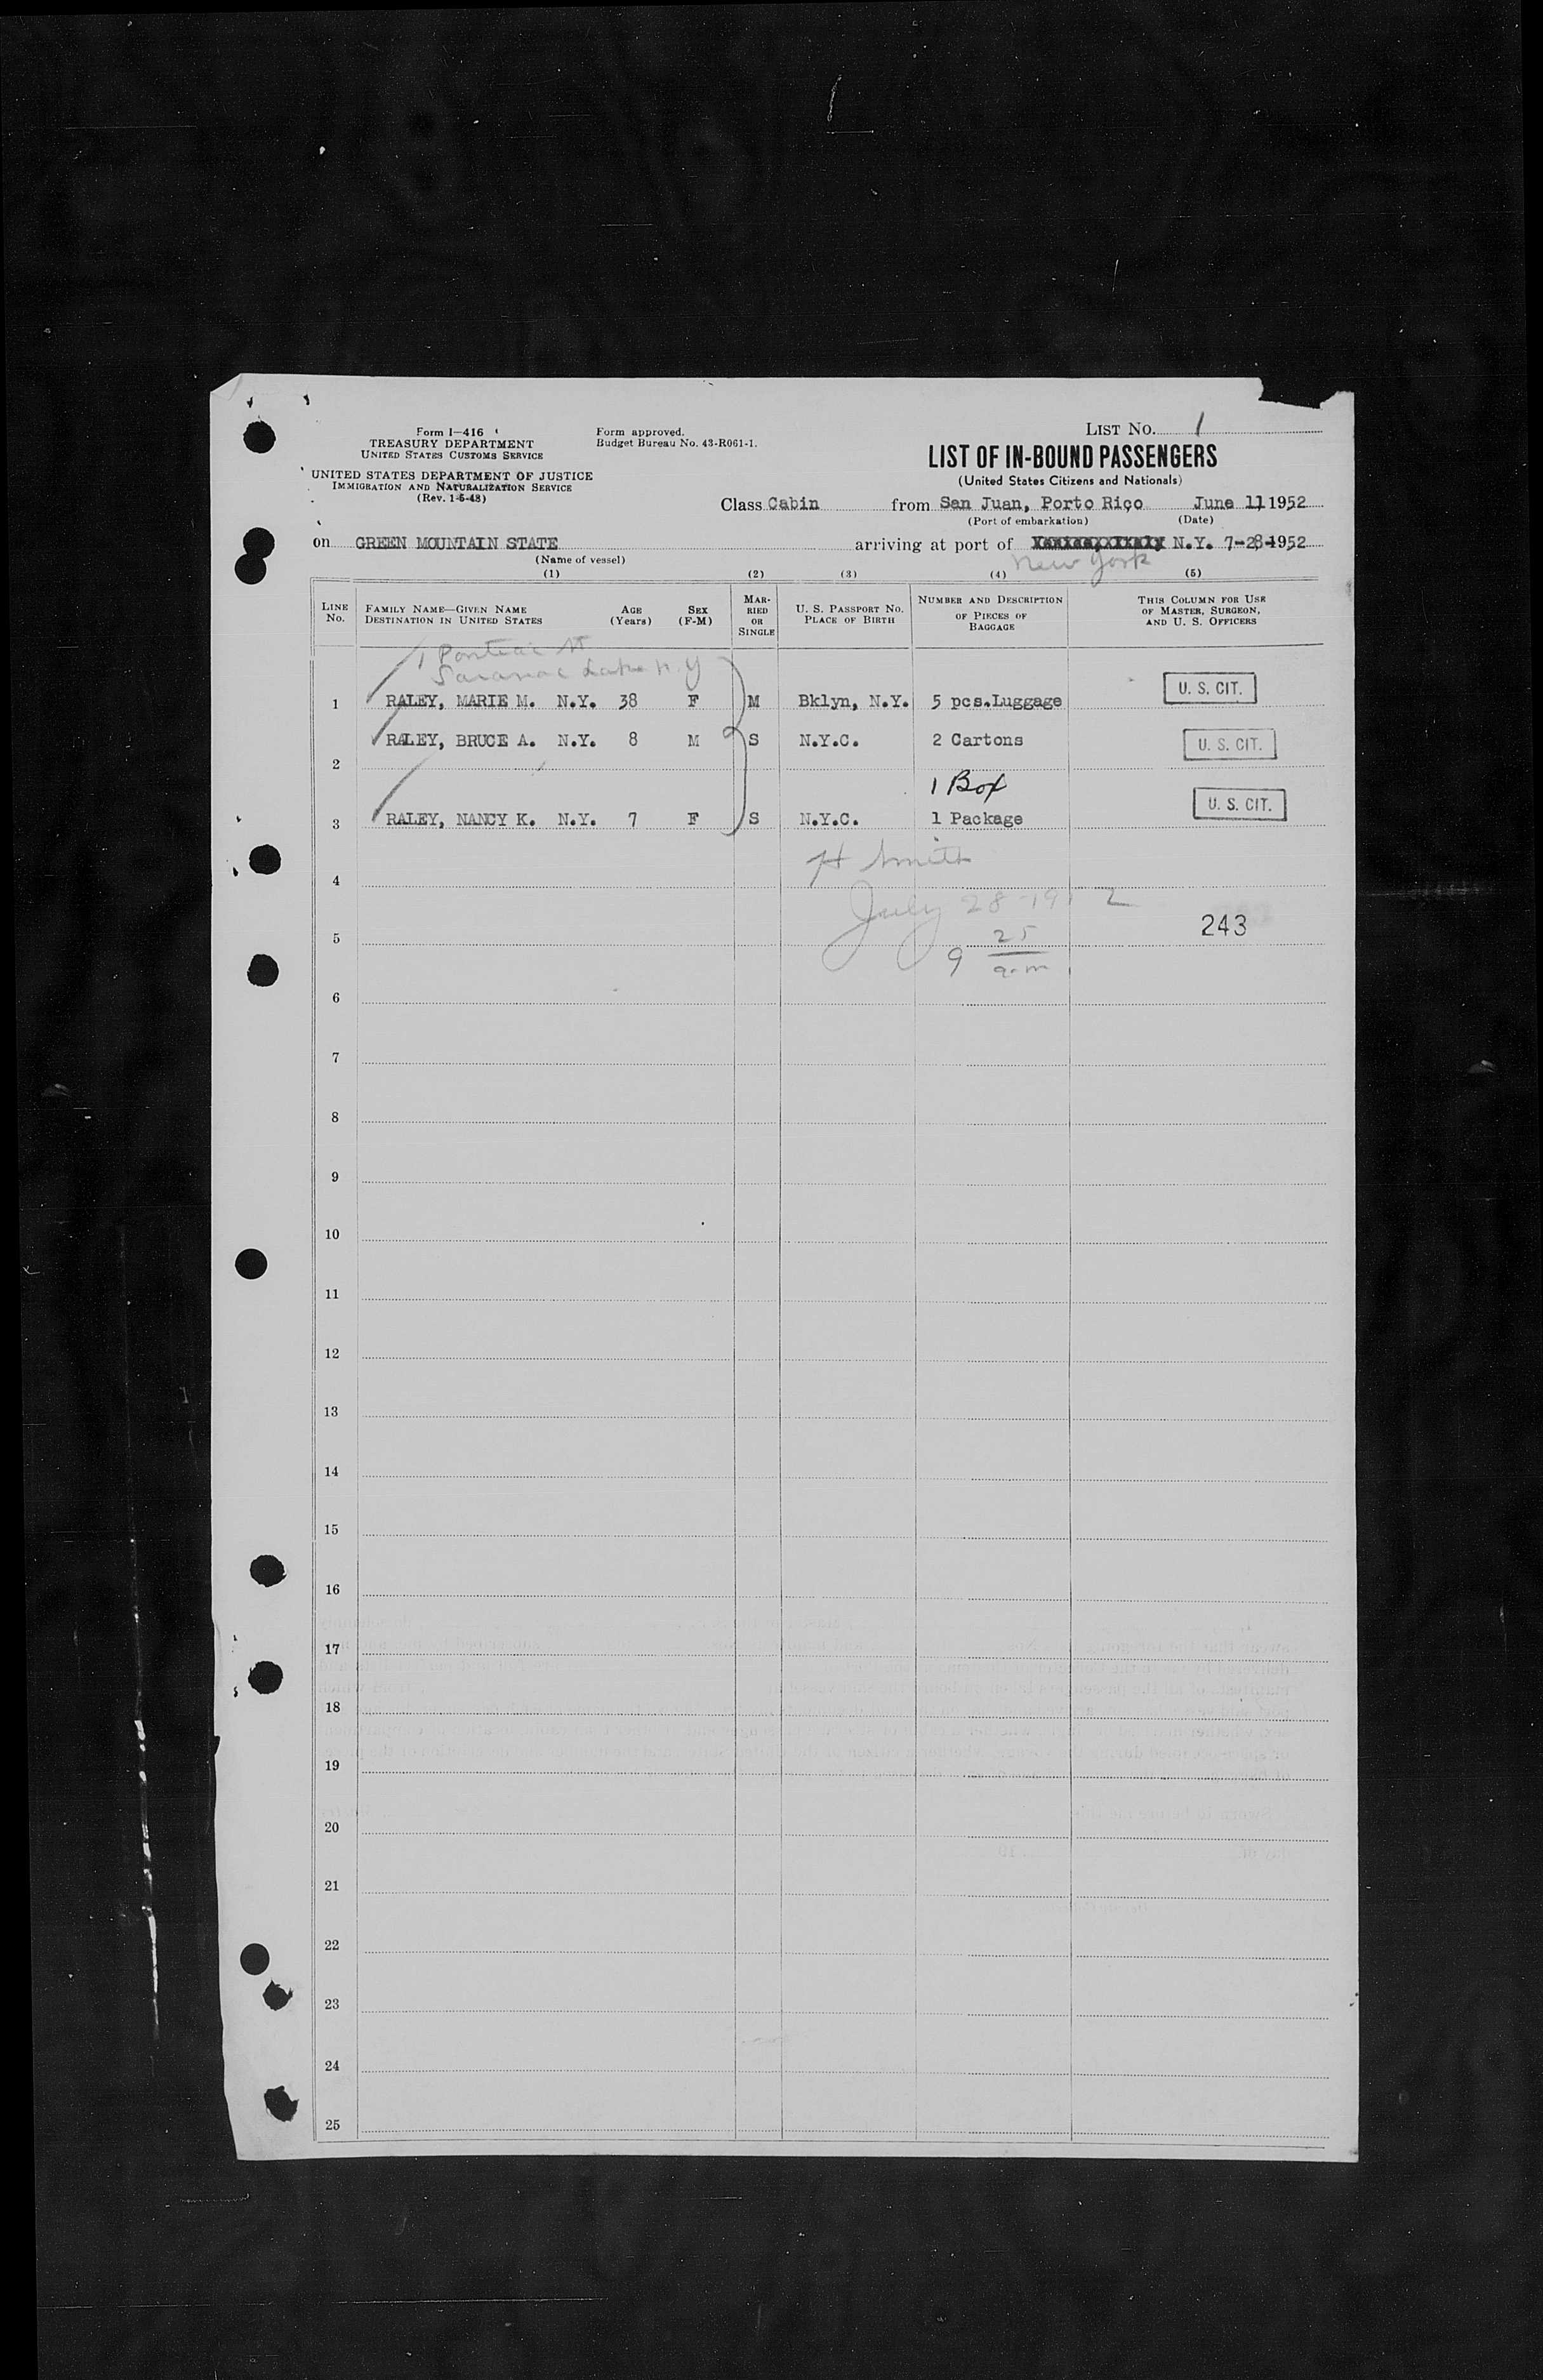 LIST No. 1
Form I-416
TREASURY DEPARTMENT
UNITED STATES CUSTOMS SERVICE
Form approved.
Budget Bureau No. 43-R061-1.
UNITED STATES DEPARTMENT OF JUSTICE
IMMIGRATION AND NATURALIZATION SERVICE
(Rev. 1-6-48)
LIST OF IN-BOUND PASSENGERS
(United States Citizens and Nationals)
Class Cabin from San Juan, Porto Rico June 11 1952
(Port of embarkation) (Date)
on GREEN MOUNTAIN STATE arriving at port of N.Y. 7-28-1952
New York
(Name of vessel)
(1) (2) (3) (4) (5)
LINE No.
FAMILY NAME—GIVEN NAME
DESTINATION IN UNITED STATES
AGE (Years)
SEX (F-M)
MARRIED OR SINGLE
U. S. PASSPORT NO.
PLACE OF BIRTH
NUMBER AND DESCRIPTION
OF PIECES OF
BAGGAGE
THIS COLUMN FOR USE
OF MASTER, SURGEON,
AND U. S. OFFICERS
1 Pontiac St
Saranac Lake N.Y
1 RALEY, MARIE M. N.Y. 38 F M Bklyn, N.Y. 5 pcs.Luggage U. S. CIT.
2 RALEY, BRUCE A. N.Y. 8 M S N.Y.C. 2 Cartons U. S. CIT.
1 Box
3 RALEY, NANCY K. N.Y. 7 F S N.Y.C. 1 Package U. S. CIT.
H Smith
4
July 28-1952
5 243
9 25
a.m
6
7
8
9
10
11
12
13
14
15
16
17
18
19
20
21
22
23
24
25